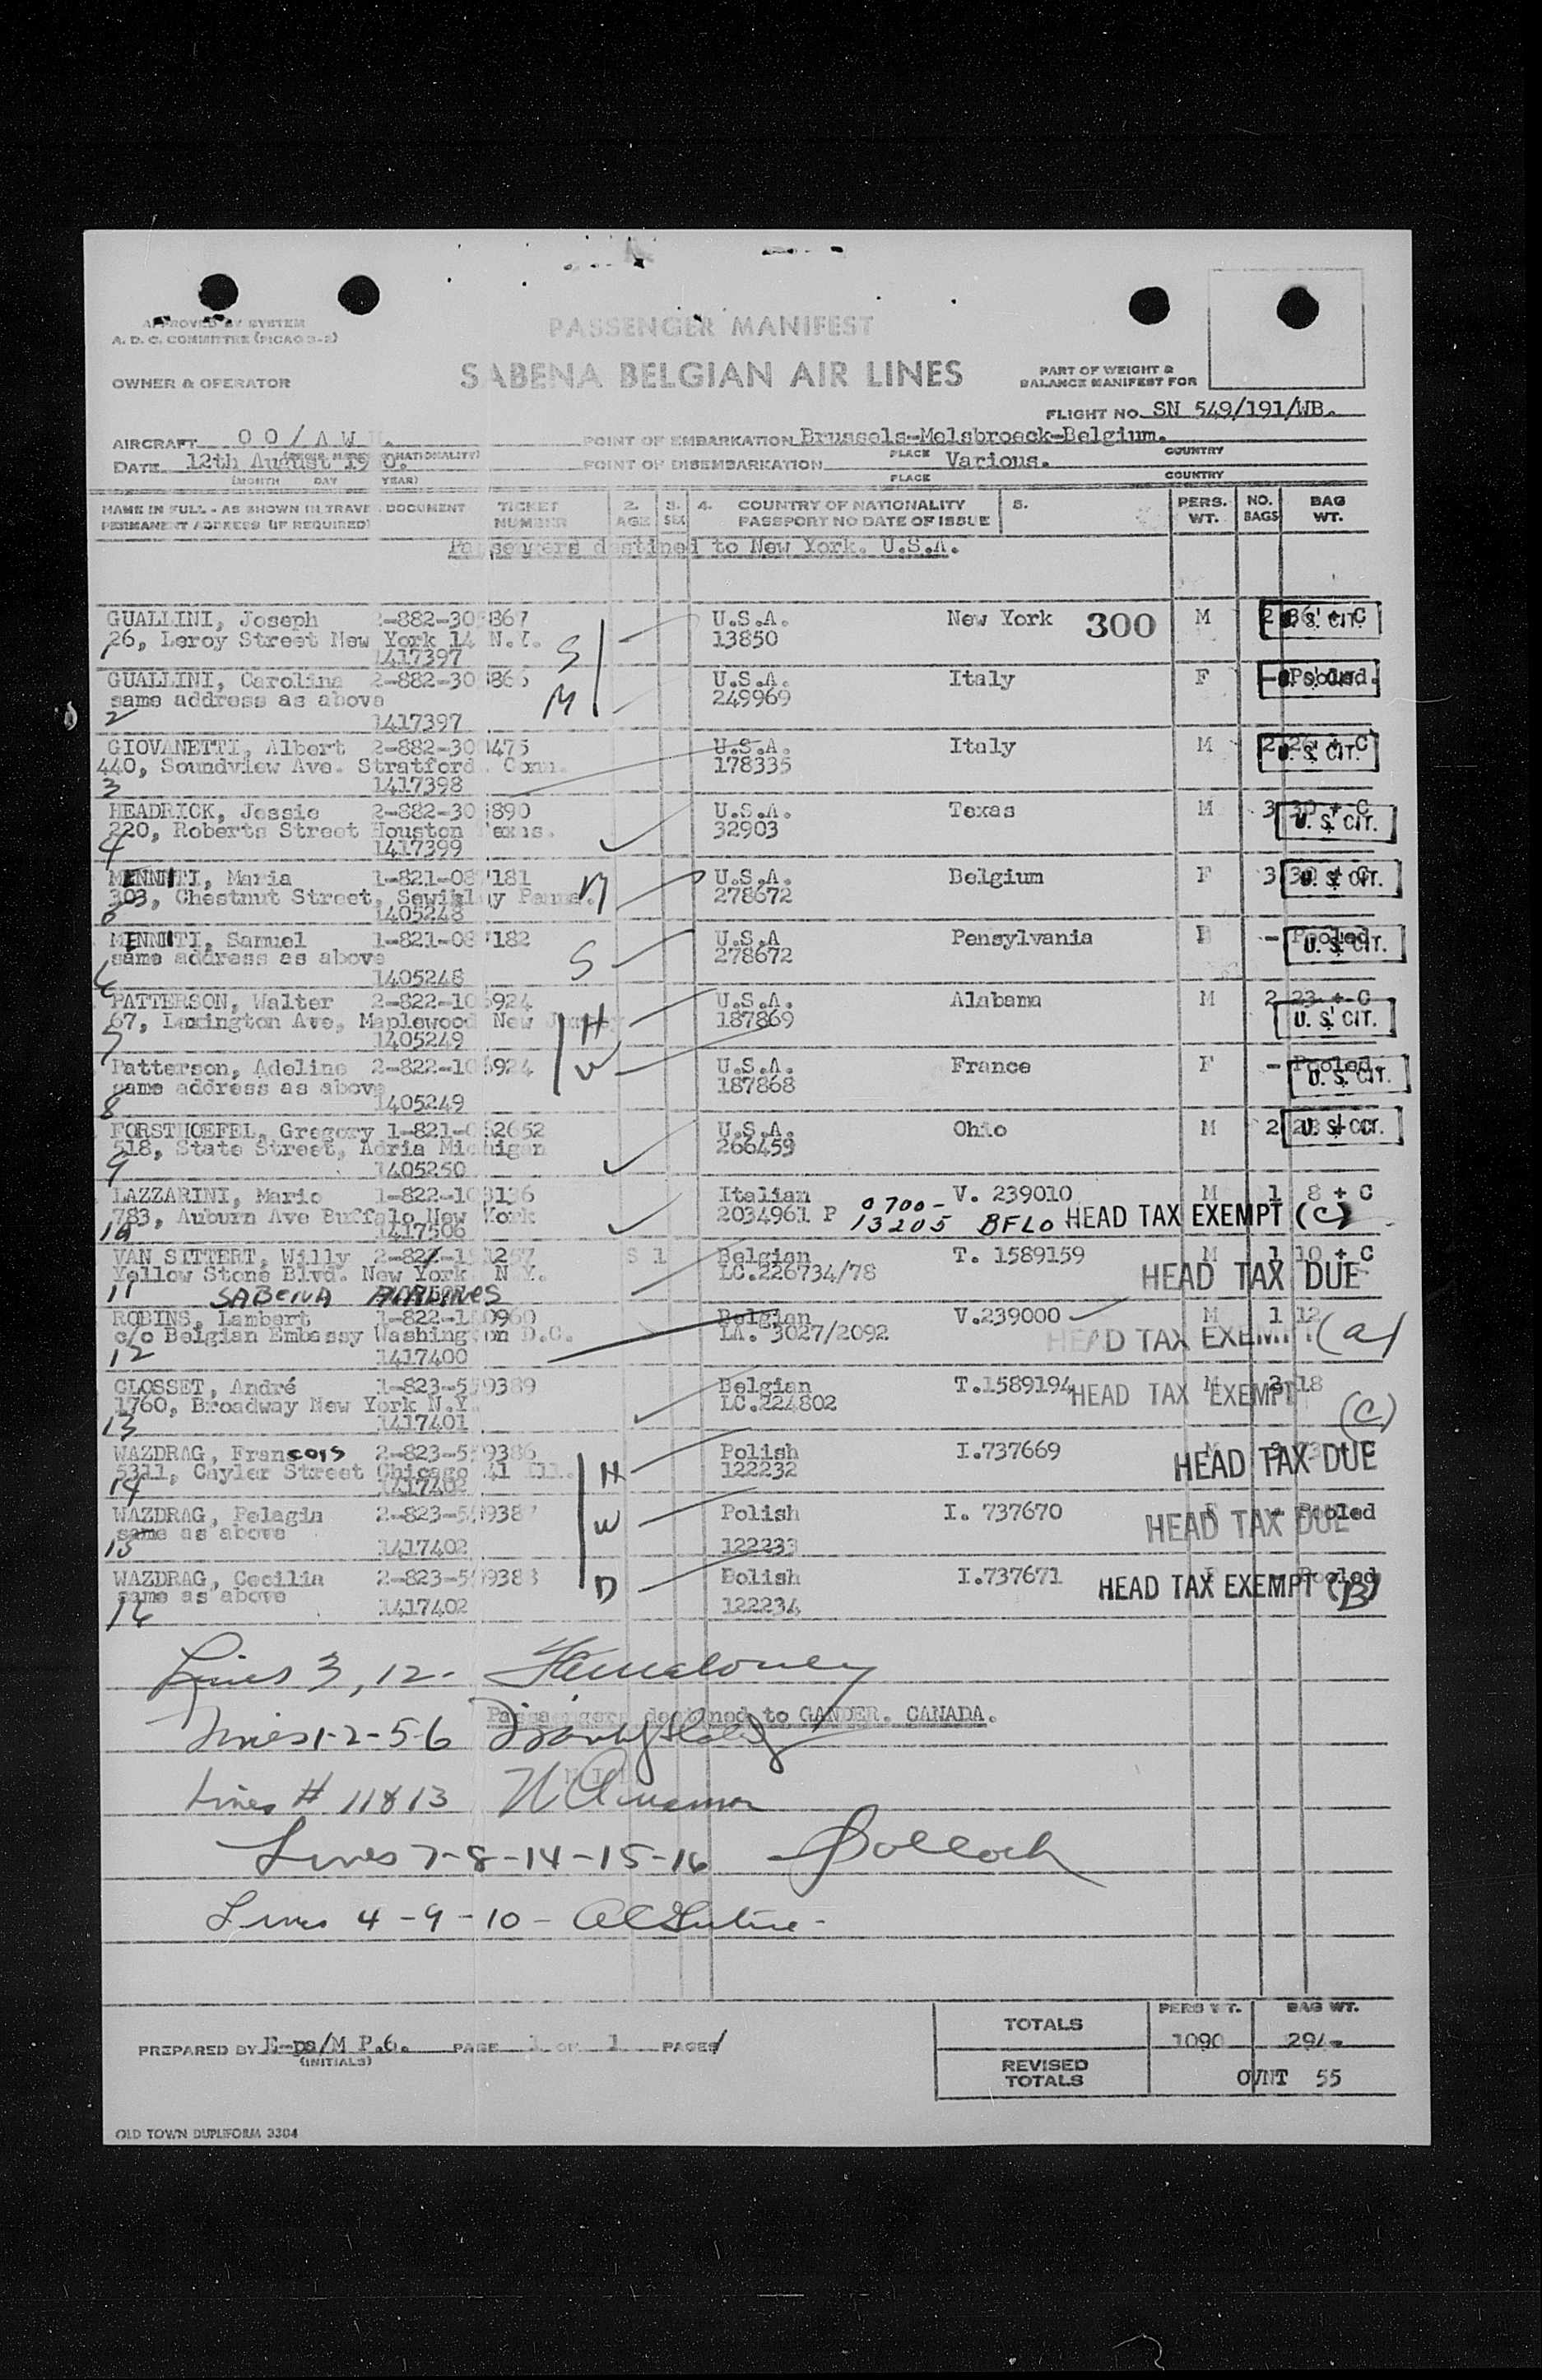 APPROVED BY SYSTEM
A. D. C. COMMITTEE (PICAO 3-2)
PASSENGER MANIFEST
SABENA BELGIAN AIR LINES
OWNER & OPERATOR
PART OF WEIGHT &
BALANCE MANIFEST FOR
FLIGHT NO. SN 549/191/WB.
AIRCRAFT OO/AW
POINT OF EMBARKATION Brussels-Melsbroeck-Belgium.
PLACE COUNTRY
DATE 12th August 19 0.
(MONTH DAY YEAR)
POINT OF DISEMBARKATION Various.
PLACE COUNTRY
NAME IN FULL - AS SHOWN IN TRAVE DOCUMENT TICKET 2. 3. 4. COUNTRY OF NATIONALITY 5. PERS. NO. BAG
PERMANENT ADDRESS (IF REQUIRED) NUMBER AGE SEX PASSPORT NO DATE OF ISSUE WT. BAGS WT.
Passengers destined to New York. U.S.A.
GUALLINI, Joseph 2-882-30 867 U.S.A. New York 300 M 2 36 + C U. S. CIT.
26, Leroy Street New York 14 N.Y. S 13850
1 1417397
GUALLINI, Carolina 2-882-30 866 U.S.A. Italy F - Pooled.
same address as above M 249969
2 1417397
GIOVANETTI, Albert 2-882-30 475 U.S.A. Italy M 2 26 + C U. S. CIT.
440, Soundview Ave. Stratford. Conn. 178335
3 1417398
HEADRICK, Jessie 2-882-30 890 U.S.A. Texas M 3 30 + C
220, Roberts Street Houston Texas. 32903 U. S. CIT.
4 1417399
MENNITI, Maria 1-821-08 181 M U.S.A. Belgium F 3 30 + C U. S. CIT.
303, Chestnut Street, Sewikley Penna. 278672
1405248
MENNITI, Samuel 1-821-08 182 U.S.A Pensylvania - Pooled
same address as above S 278672 U. S. CIT.
6 1405248
PATTERSON, Walter 2-822-10 924 U.S.A. Alabama M 2 23 + C
67, Lexington Ave, Maplewood New Jersey H 187869 U. S. CIT.
7 1405249
Patterson, Adeline 2-822-10 924 W U.S.A. France F - Pooled.
same address as above 187868 U. S. CIT.
8 1405249
FORSTHOEFEL, Gregory 1-821-0 2652 U.S.A. Ohio M 2 U. S. CIT.
518, State Street, Adria Michigan 266459
9 1405250
LAZZARINI, Mario 1-822-10 136 Italian V. 239010 M 1 8 + C
783, Auburn Ave Buffalo New York 2034961 P 0700-13205 BFLO HEAD TAX EXEMPT (C)
10 1417508
VAN SITTERT, Willy S 1 Belgian T. 1589159 M 1 10 + C
Yellow Stone Blvd. New York N.Y. LC.226734/78 HEAD TAX DUE
11 SABENA AIRLINES
ROBINS, Lambert 1-822-1 0960 Belgian V.239000 M 1 12
c/o Belgian Embassy Washington D.C. LA. 3027/2092 HEAD TAX EXEMPT (a)
12 1417400
CLOSSET, André 1-823-5 9389 Belgian T.1589194 M 2 18
1760, Broadway New York N.Y. LC.224802 HEAD TAX EXEMPT (C)
13 1417401
WAZDRAG, Francois 2-823-5 9386 Polish I.737669
5311, Cayler Street Chicago 41 Ill. H 122232 HEAD TAX DUE
14 1417402
WAZDRAG, Pelagia 2-823-5 938 Polish I. 737670 - Pooled
same as above W HEAD TAX DUE
15 1417402 122233
WAZDRAG, Cecilia 2-823-5 9388 Bolish I.737671 Pooled
same as above D HEAD TAX EXEMPT (B)
16 1417402 122234
Lines 3, 12-
Passengers destined to GANDER. CANADA.
Lines 1-2-5-6
Lines # 11 & 13
Lines 7-8-14-15-16 Pollock
Lines 4-9-10-
TOTALS PERS WT. BAG WT.
1090 294
PREPARED BY E-ps/M P.6. PAGE 1 OF 1 PAGES
(INITIALS)
REVISED TOTALS OVNT 55
OLD TOWN DUPLIFORM 3304